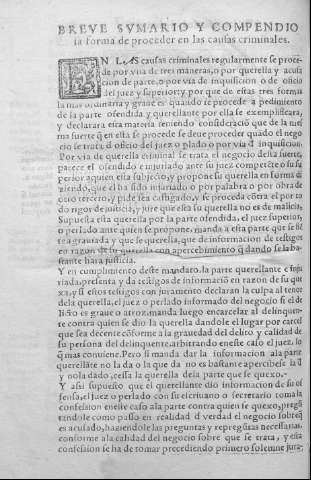 BREVE SVMARIO Y COMPENDIO
la forma de proceder en las causas criminales.
EN LAS causas criminales regularmente se proce-
de por via de tres maneras, o por querella y acusa
cion de parte, o por via de inquisicion o de oficio
del juez y superior: y por que de estas tres formas
la mas ordinaria y graue es quando se procede a pedimiento
de la parte ofendida y querellante por ella se exemplificara,
y declarara esta materia teniendo consideracio que de la mis
ma suerte q̃ en esta se procede se deue proceder quãdo el nego
cio se trata d̃ oficio del juez o plado o por via d̃ inquisiciõ.
Por via de querella criminal se trata el negocio desta suerte,
parece el ofendido e injuriado ante su juez competẽte o su su
perior aquien esta subjecto, y propone su querella en forma di
ziendo, que el ha sido injuriado o por palabra o por obra de
otro tercero, y pide sea castigado, y se proceda cõtra el por to
do rigor de justicia, y jure que esta su querella no es de malicia.
Supuesta esta querella por la parte ofendida, el juez superior,
o perlado ante quien se propone, manda a esta parte que se siẽ
te agrauiada y que se querella, que de informacion de testigos
en razon de su querella con apercebimiento q̃ dando se la ba-
stante hara justicia.
Y en cumplimiento deste mandato, la parte querellante e inju
riada, presenta y da testigos de informaciõ en razon de su que
xa, y si estos testigos con juramento declaran la culpa al tenor
dela querella, el juez o perlado informado del negocio si el de
licto es graue o atroz, manda luego encarcelar al delinquen-
te contra quien se dio la querella dandole el lugar por carcel
que sea decente cõforme a la grauedad del delito y calidad de
su persona del delinquente, arbitrando eneste caso el juez, lo
q̃ mas conuiene. Pero si manda dar la informacion ala parte
querellãte no la da o la que da no es bastante
y nola dado, cessa la querella dela parte que se quexo.
Y asi supuesto que el querellante dio informacion de su of
fensa, el juez o perlado con su escriuano o secretario toma la
confession eneste caso ala parte contra quien se quexo, pregũ
tandole como passo en realidad d̃ verdad el negocio sobre q̃
es acusado, haziendole las preguntas y repreguntas necessarias,
conforme ala calidad del negocio sobre que se trata, y esta
confession se ha de tomar precediendo primero solemne jura-